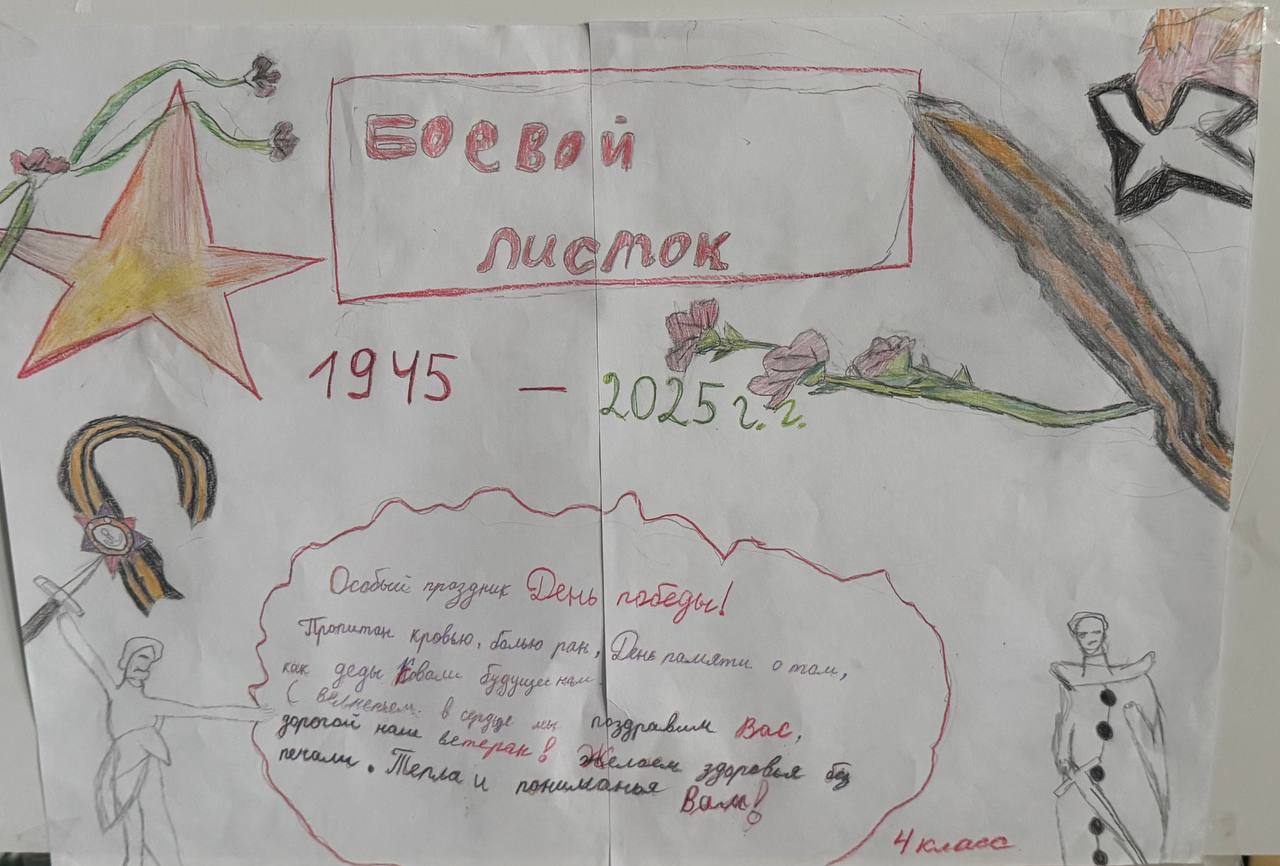 Боевой
листок
1945 — 2025 г. г.
Особый праздник День победы!
Пропитан кровью, болью ран, День памяти о том,
как деды Ковали будущее нам
С в сердце мы поздравим Вас,
дорогой наш ветеран! Желаем здоровья без
печали. Тепла и пониманья Вам!
4 класс